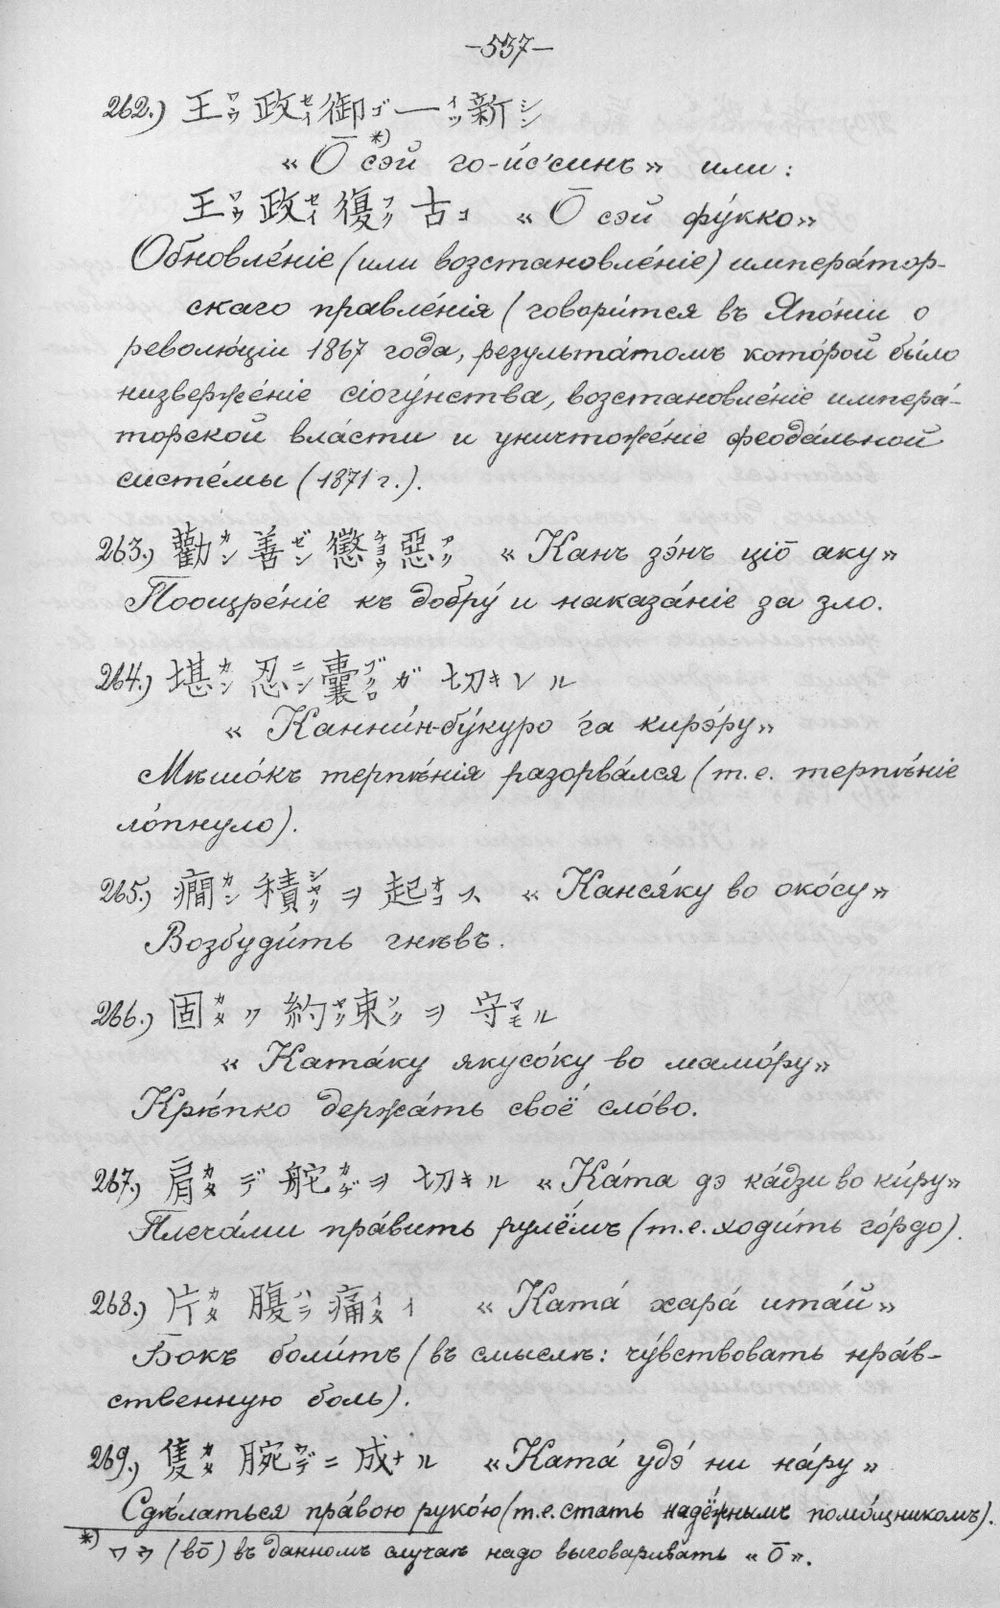 –537–
262.) 王ワウ政セイ御ゴ一イッ新シン
«О̄*) сэй го-и́с'синъ» или:
王ワウ政セイ復フク古コ «О̄ сэй фу́кко»
Обновле́ніе (или возстановле́ніе) импера́тор-
скаго правле́нія (говори́тся въ Япо́ніи о
револю́ціи 1867 года, результа́томъ кото́рой бы́ло
низверже́ніе сіогу́нства, возстановле́ніе импера́-
торской вла́сти и уничтоже́ніе феода́льной
систе́мы (1871 г.).
263.) 勸カン善ゼン懲チョウ惡アク «Канъ зэ́нъ ціо̄ аку»
Поощре́ніе къ добру́ и наказа́ніе за зло.
264.) 堪カン忍ニン囊ブクロガ 切キレル
«Канни́н-бу́куро 'га кирэ́ру»
Мѣшо́къ терпѣ́нія разорва́лся (т.е. терпѣ́ніе
ло́пнуло).
265.) 癇カン積シャクヲ起オコス «Канся́ку во око́су»
Возбуди́ть гнѣвъ.
266.) 固カタク 約ヤク束ソクヲ 守マモル
«Ката́ку якусо́ку во мамо́ру»
Крѣ́пко держа́ть своё сло́во.
267.) 肩カタデ 舵カヂヲ 切キル «Ка́та дэ ка́дзи во ки́ру»
Плеча́ми пра́вить рулёмъ (т.е. ходи́ть го́рдо).
268.) 片カタ 腹ハラ痛イタイ «Ката́ хара́ ита́й»
Бокъ боли́тъ (въ смыслѣ: чу́вствовать нра́в-
ственную боль).
269.) 隻カタ 腕ウデニ 成ナル «Ката́ удэ́ ни на́ру»
Сдѣ́латься пра́вою руко́ю (т.е. стать надёжнымъ помо́щникомъ).
*) ワウ (во̄) въ данномъ случаѣ надо выговаривать «о̄».